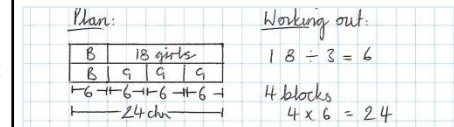 Plan:
B 18 girls
B G G G
6 6 6 6
24 chn
Working out:
18 ÷ 3 = 6
4 blocks
4 x 6 = 24